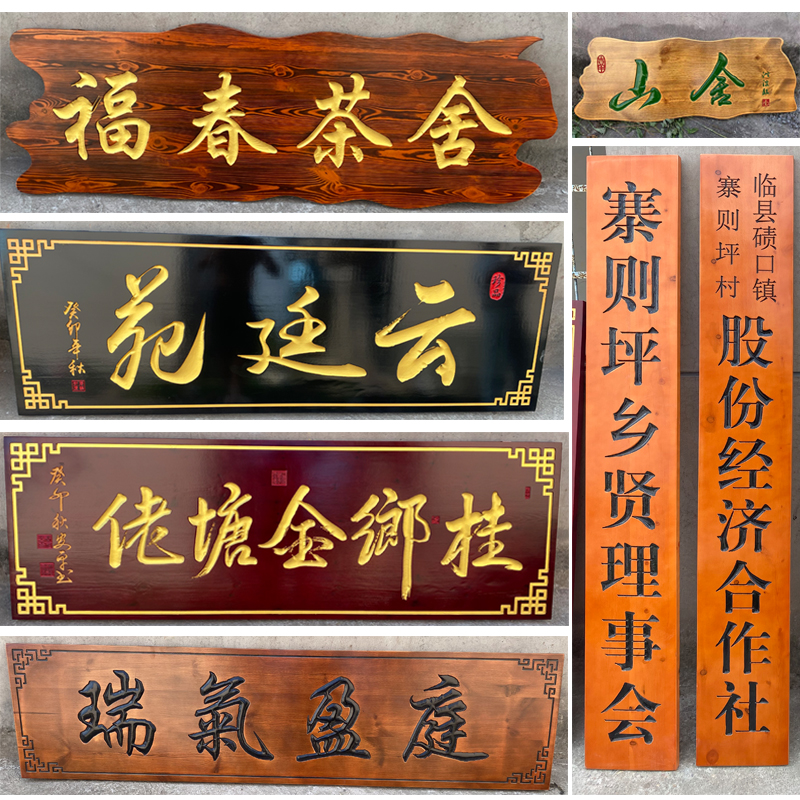 福春茶舍
山舍
云廷苑
癸卯年秋
桂鄉金塘佬
癸卯秋
瑞氣盈庭
寨则坪乡贤理事会
临县碛口镇
寨则坪村
股份经济合作社